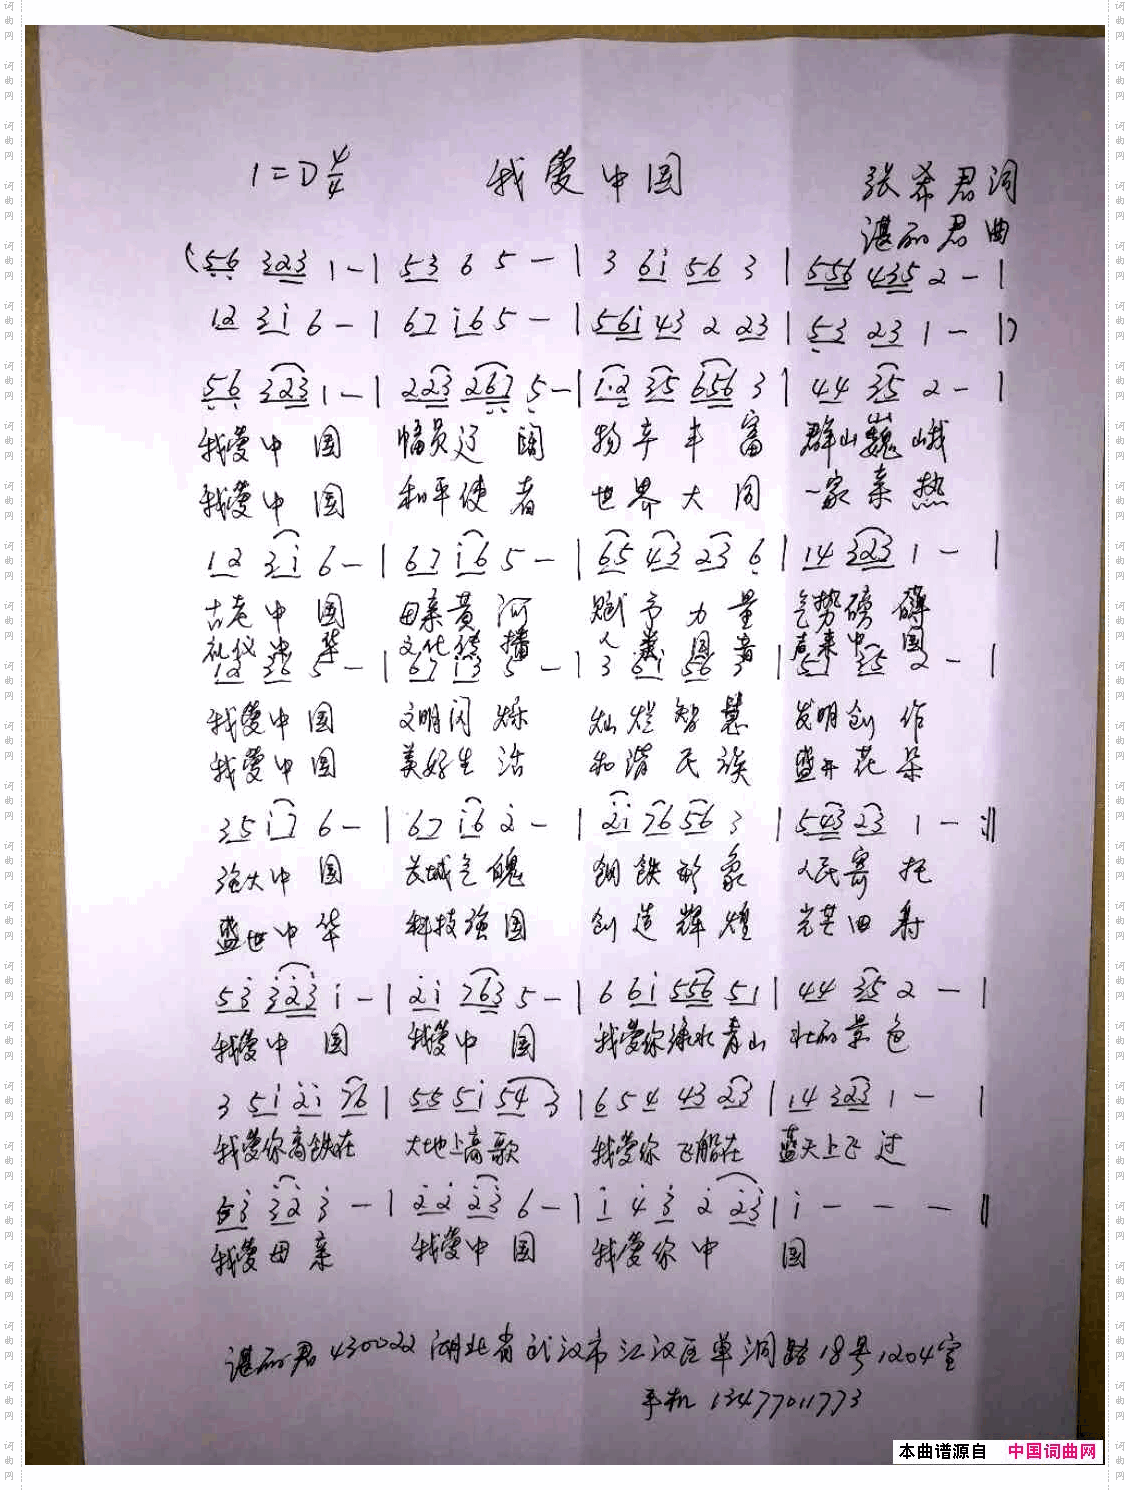 1=D 4/4 我爱中国 张希君词
谌丽君曲
(56 323 1-| 53 6 5-| 3 6i 56 3 | 556 435 2-|
12 3i 6-| 67 i6 5-| 56i 43 2 23 | 53 23 1-|)
56 323 1-| 223 267 5-| 1·2 35 656 3 | 44 35 2-|
我爱中国 幅员辽阔 物产丰富 群山巍峨
我爱中国 和平使者 世界大同 一家亲热
12 3i 6-| 67 i6 5-| 65 43 23 6 | 14 323 1-|
古老中国 母亲黄河 赋予力量 气势磅礴
礼仪中华 文化传播 人类福音 春来中国
12 36 5-| 67 i3 5-| 3 6i 56 3 | 57 25 2-|
我爱中国 文明闪烁 灿烂智慧 发明创作
我爱中国 美好生活 和谐民族 盛开花朵
35 i7 6-| 67 i6 2-| 2i 76 56 3 | 543 23 1-:||
强大中国 长城气魄 钢铁形象 人民寄托
盛世中华 科技强国 创造辉煌 光芒四射
53 323 i-| 2i 763 5-| 6 6i 556 51 | 44 35 2-|
我爱中国 我爱中国 我爱你绿水青山 壮丽景色
3 5i 2i 76 | 55 5i 54 3 | 654 43 23 | 14 323 1-|
我爱你高铁在 大地上高歌 我爱你飞船在 蓝天上飞过
53 32 3-| 22 23 6-| i 4 3 2 23 | i - - - ||
我爱母亲 我爱中国 我爱你中 国
谌丽君 430022 湖北省武汉市江汉区单洞路18号1204室
手机 13477011773
本曲谱源自 中国词曲网